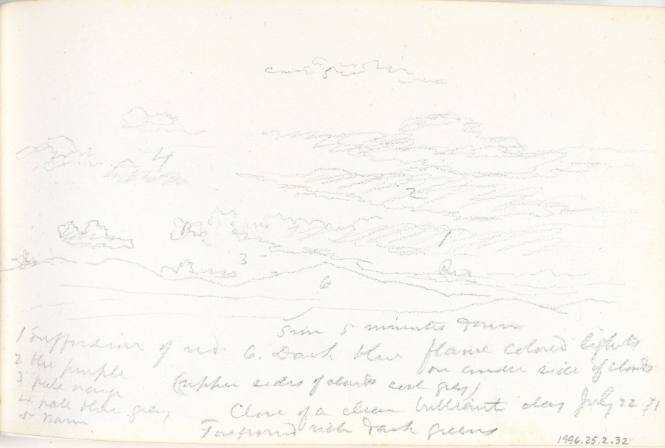 5
4
2
1
3
6
Sun 5 minutes down
1 Suffusion of red 6. Dark blue flame colored lights
2 blue purple on under side of clouds
3 pale orange (upper sides of clouds cool grey)
4 pale blue grey Close of a clear brilliant day July 22 71
5 warm Foreground rich dark greens
1996.25.2.32